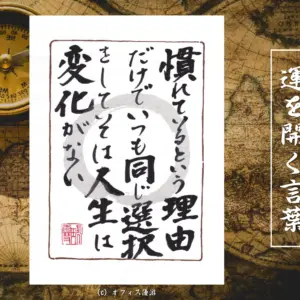 運を開く言葉
慣れているという理由
だけでいつも同じ選択
をしていては人生は
変化がない
(c) オフィス蓮沼